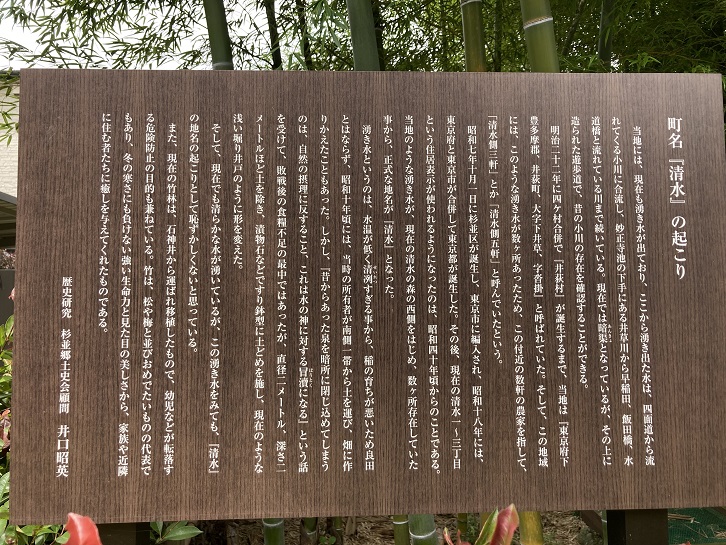 町名『清水』の起こり
当地には、現在も湧き水が出ており、ここから湧き出た水は、四面道から流
れてくる小川に合流し、妙正寺池の下手にある井草川から早稲田、飯田橋、水
道橋と流れている川まで続いている。現在では暗渠となっているが、その上に
造られた遊歩道で、昔の小川の存在を確認することができる。
明治二十二年に四ケ村合併で『井荻村』が誕生するまで、当地は『東京府下
豊多摩郡、井荻町、大字下井草、字沓掛』と呼ばれていた。そして、この地域
には、このような湧き水が数ヶ所あったため、この付近の数軒の農家を指して、
「清水側三軒」とか「清水側五軒」と呼んでいたという。
昭和七年十月一日に杉並区が誕生し、東京市に編入され、昭和十八年には、
東京府と東京市が合併して東京都が誕生した。その後、現在の清水一〜三丁目
という住居表示が使われるようになったのは、昭和四十年頃からのことである。
当地のような湧き水が、現在の清水の森の西側をはじめ、数ヶ所存在していた
事から、正式な地名が「清水」となった。
湧き水というのは、水温が低く清冽すぎる事から、稲の育ちが悪いため良田
とはならず、昭和十年頃には、当時の所有者が南側一帯から土を運び、畑に作
りかえたこともあった。しかし、「昔からあった泉を暗所に閉じ込めてしまう
のは、自然の摂理に反すること、これは水の神に対する冒瀆になる」という話
を受けて、敗戦後の食糧不足の最中ではあったが、直径二メートル、深さ二
メートルほど土を除き、漬物石などですり鉢型に土どめを施し、現在のような
浅い堀り井戸のように形を変えた。
そして、現在でも清らかな水が湧いているが、この湧き水をみても、『清水』
の地名の起こりとして恥ずかしくないと思っている。
また、現在の竹林は、石神井から運ばれ移植したもので、幼児などが転落す
る危険防止の目的も兼ねている。竹は、松や梅と並びおめでたいものの代表で
もあり、冬の寒さにも負けない強い生命力と見た目の美しさから、家族や近隣
に住む者たちに癒しを与えてくれたものである。
歴史研究 杉並郷土史会顧問 井口昭英